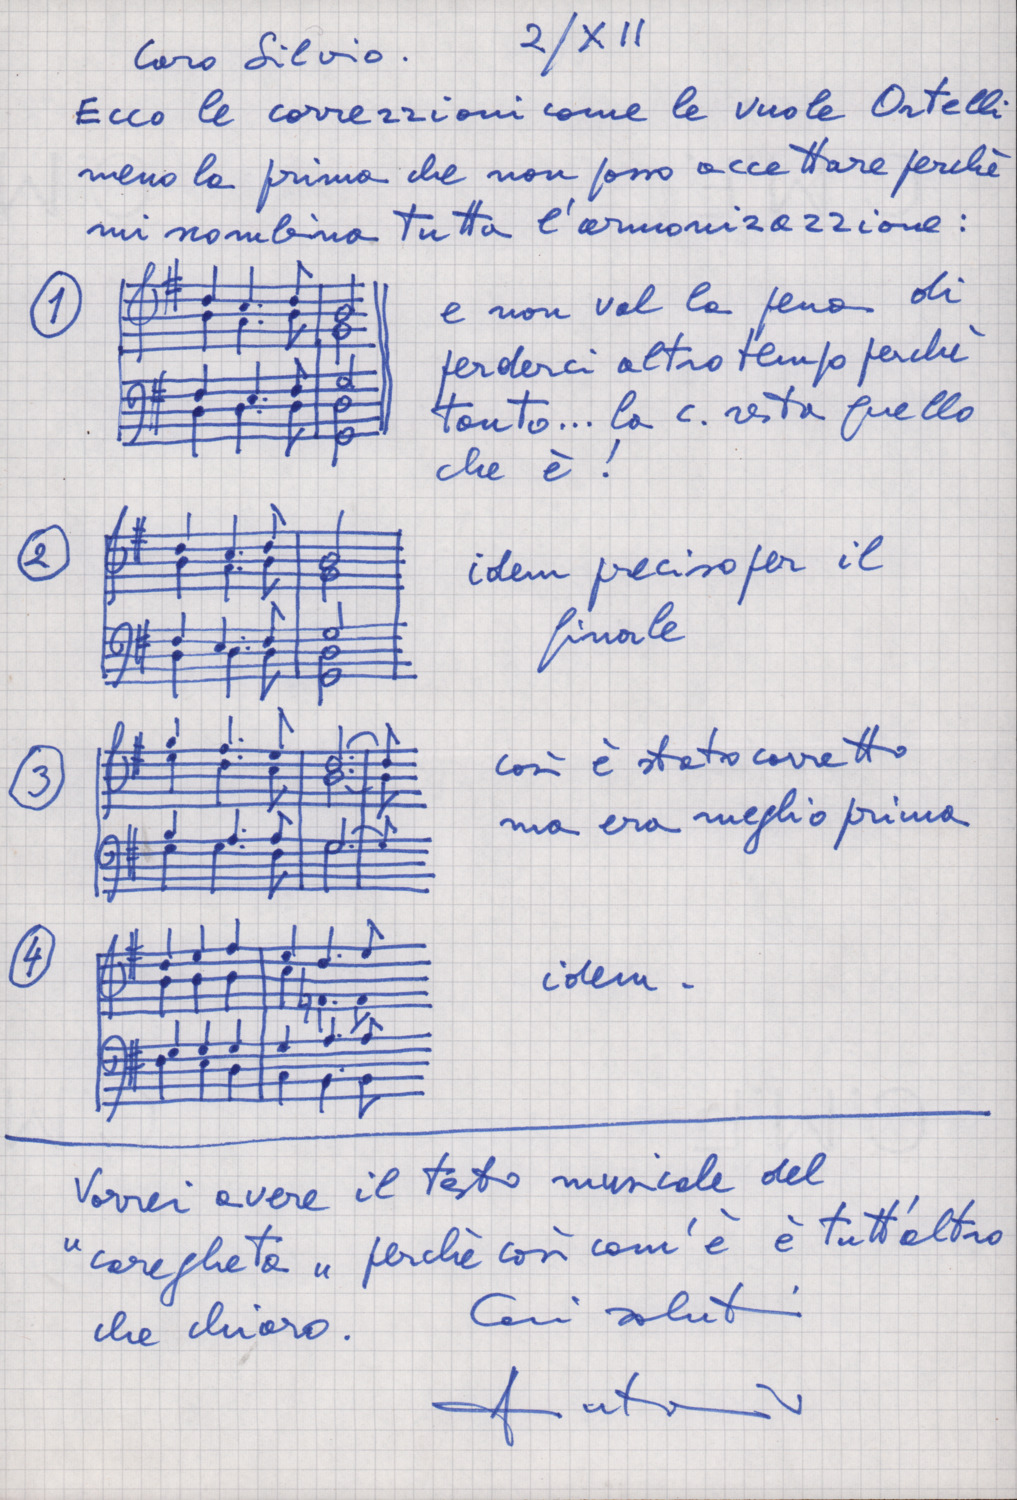 2/XII
Caro Silvio.
Ecco le correzzioni come le vuole Ortelli
meno la prima che non posso accettare perchè
mi scombina tutta l'armonizazzione:
1
e non val la pena di
perderci altro tempo perchè
tanto... la c. resta quello
che è !
2
idem preciso per il
finale
3
così è stato corretto
ma era meglio prima
4
idem -
Vorrei avere il testo musicale del
"caregheta" perchè così com'è è tutt'altro
che chiaro.
Cari saluti